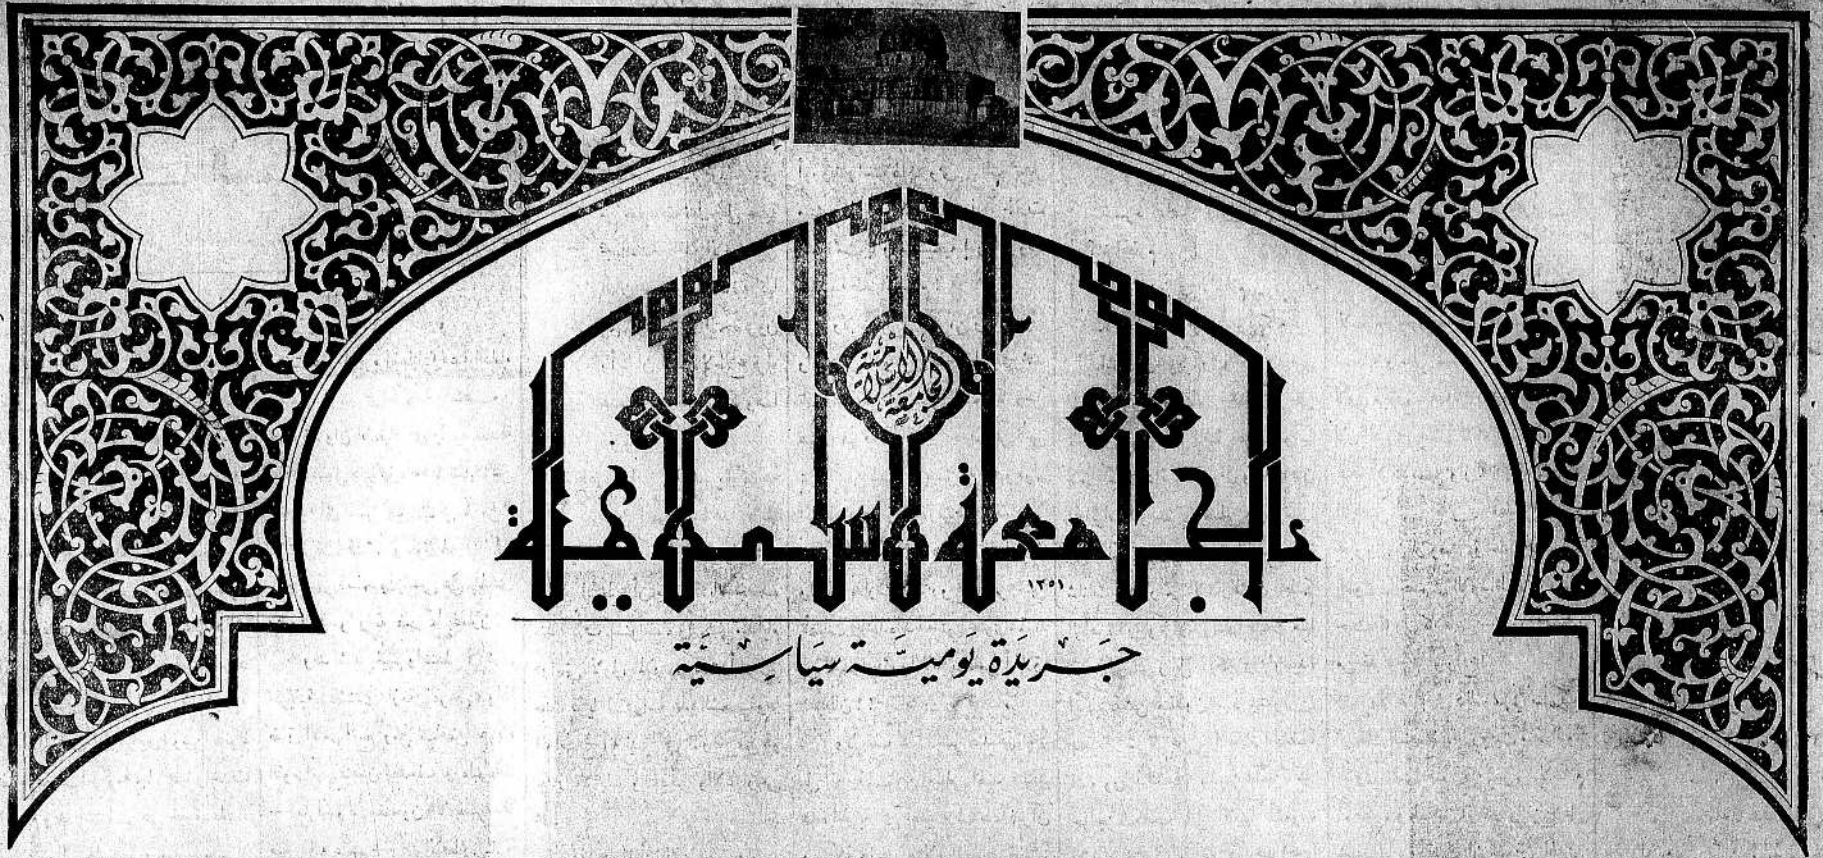 الجامعة الإسلامية
الجامعة الإسلامية
١٣٥١
جَريدَة يَوميَّة سِيَاسيَّة